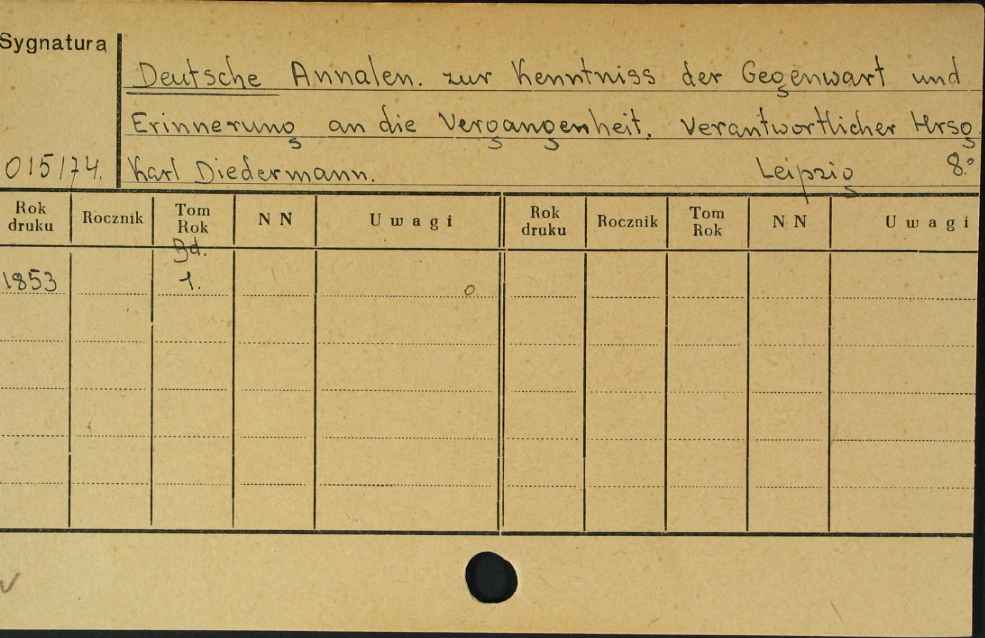 Sygnatura
Deutsche Annalen. zur Kenntniss der Gegenwart und
Erinnerung an die Vergangenheit. Verantwortlicher Hrsg.
015174. Karl Diedermann. Leipzig 8.°
Rok druku Rocznik Tom Rok NN Uwagi Rok druku Rocznik Tom Rok NN Uwagi
Bd.
1853 1.